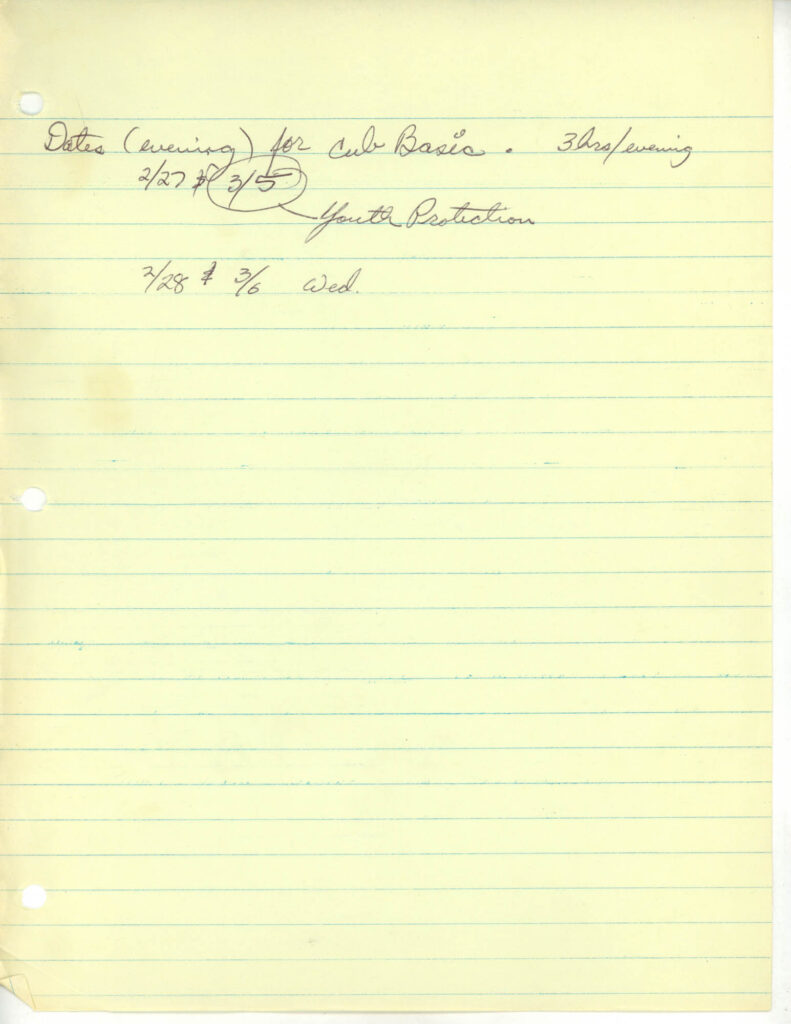 Dates (evening) for Cub Basic. 3hrs/evening
2/27 & 3/5
Youth Protection
2/28 & 3/6 Wed.